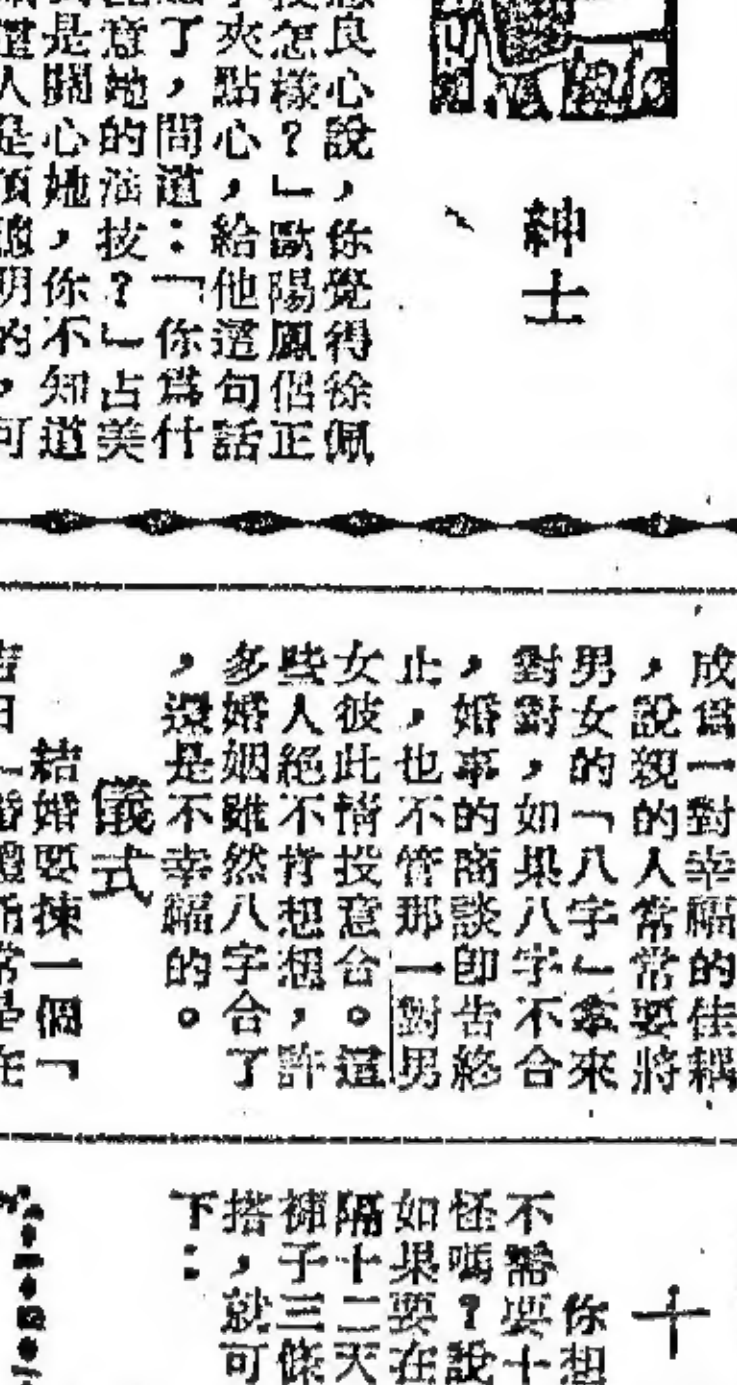 紳士
良心說，你覺得徐佩
怎樣？」歐陽鳳侶正
夾點心，給他這句話
了，問道：「你爲什
意她的演技？」占美
是關心她，你不知道
人是頂聰明的，可
成爲一對幸福的佳耦
，說親的人常常要將
男女的「八字」拿來
對對，如果八字不合
，婚事的商談即告終
止，也不管那一對男
女彼此情投意合。這
些人絕不肯想想，許
多婚姻雖然八字合了
，還是不幸福的。
儀式
結婚要揀一個「
十
你想
不需要十
怪嗎？說
如果要在
隔十二天
褲子三條
搭，就可
下：